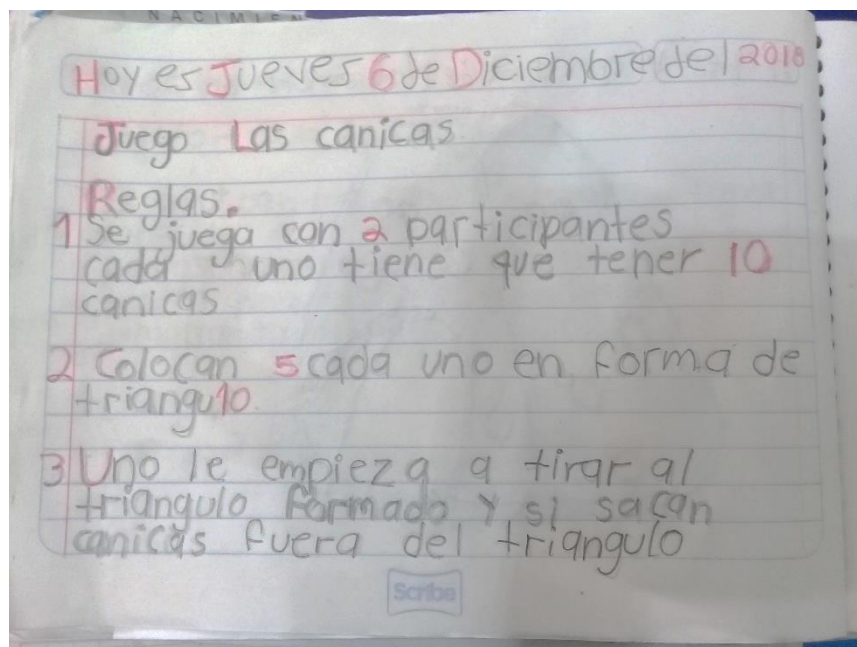 NACIMIEN
Hoy es Jueves 6 de Diciembre del 2018
Juego Las canicas
Reglas.
1 Se juega con 2 participantes
cada uno tiene que tener 10
canicas
2 Colocan 5 cada uno en forma de
triangulo.
3 Uno le empieza a tirar al
triangulo formado y si sacan
canicas fuera del triangulo
Scribe